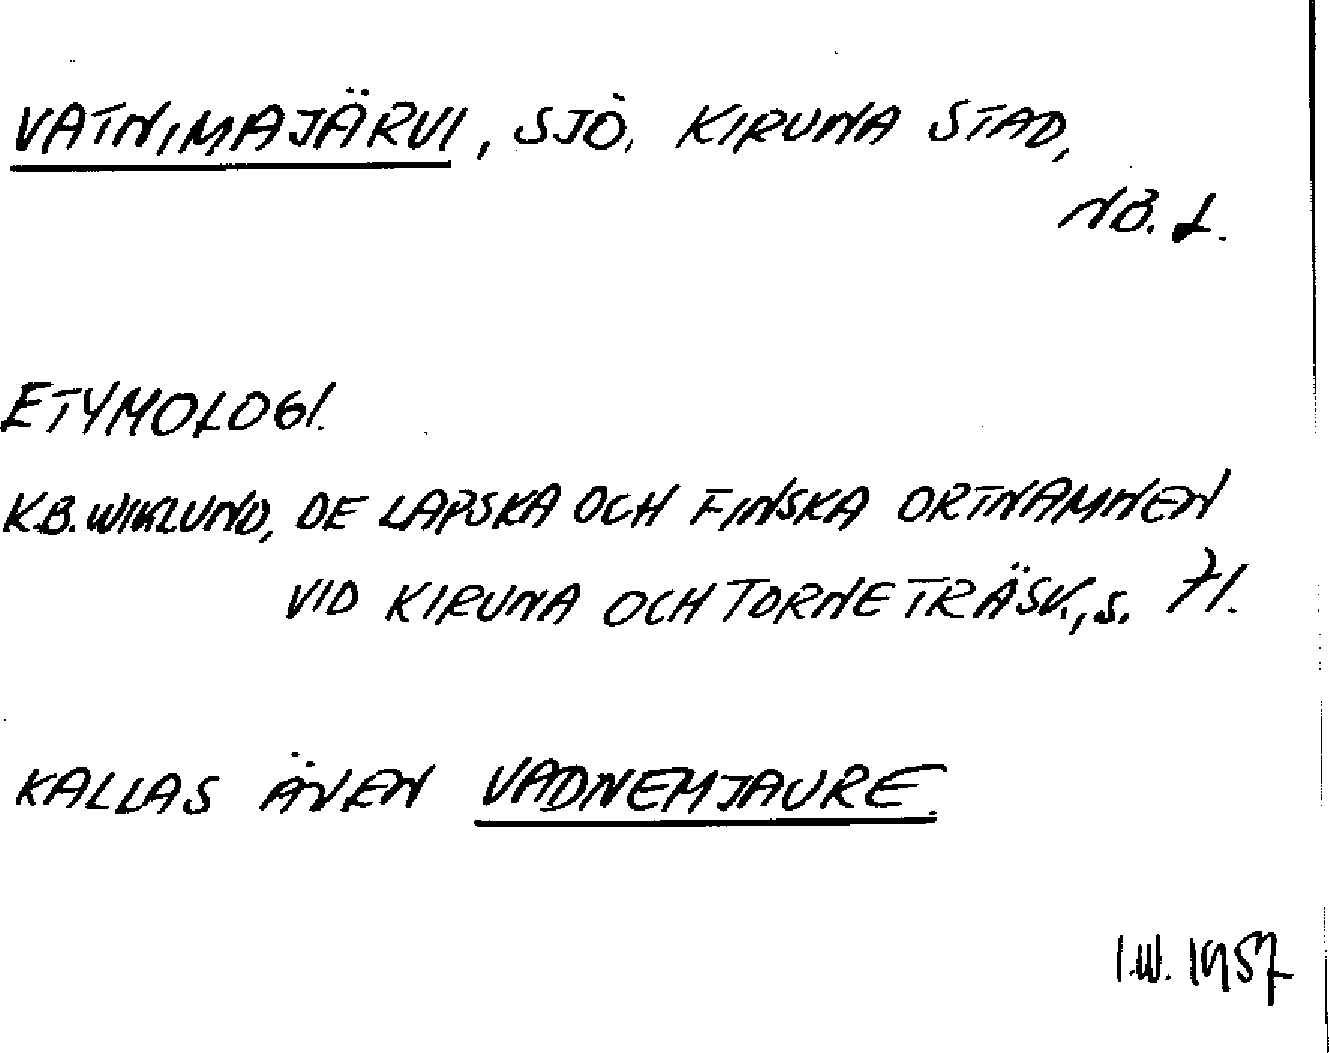 VATNIMAJÄRVI, SJÖ, KIRUNA STAD,
NB. L.
ETYMOLOGI.
K.B. WIKLUND, DE LAPSKA OCH FINSKA ORTNAMNEN
VID KIRUNA OCH TORNE TRÄSK., s. 71.
KALLAS ÄVEN VADNEMJAURE.
I.W. 1957